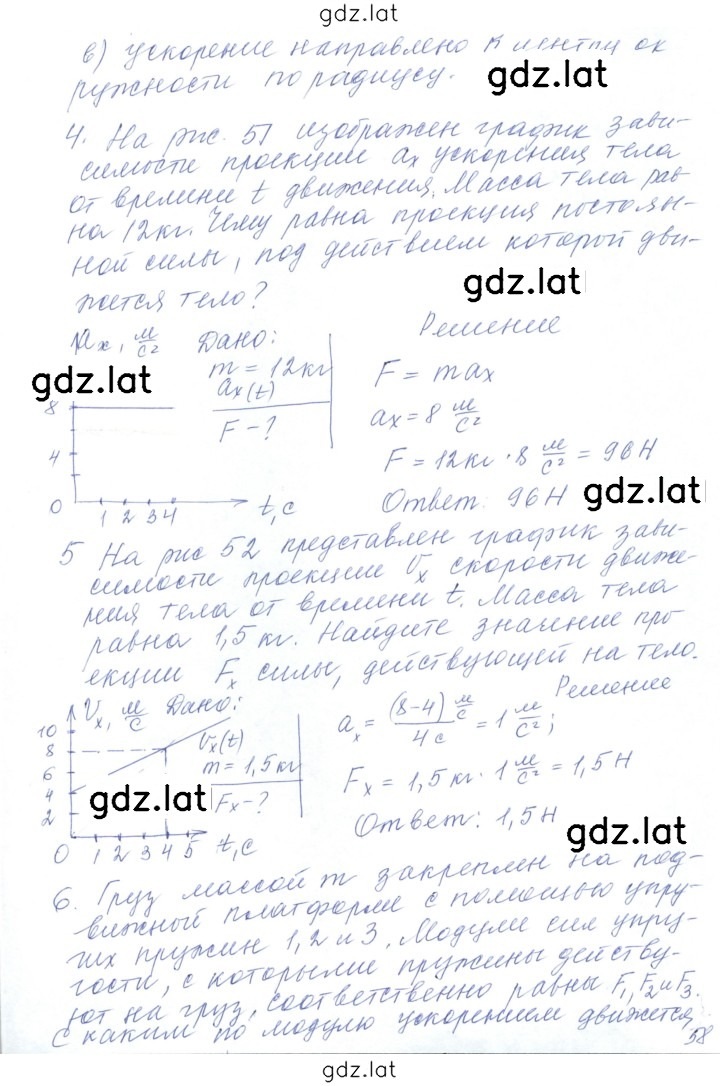 gdz.lat
в) ускорение направлено к центру ок
ружности по радиусу.
gdz.lat
4. На рис. 51 изображен график зави-
симости проекции aₓ ускорения тела
от времени t движения. Масса тела рав-
на 12кг. Чему равна проекция постоян-
ной силы, под действием которой дви-
жется тело?
gdz.lat
aₓ, м/с² Дано: Решение
m = 12кг F = maₓ
gdz.lat
aₓ(t)
8
F - ? aₓ = 8 м/с²
4 F = 12кг · 8 м/с² = 96Н
0 1 2 3 4 t, с Ответ: 96Н
gdz.lat
5 На рис 52 представлен график зави-
симости проекции Vₓ скорости движе-
ния тела от времени t. Масса тела
равна 1,5 кг. Найдите значение про
екции Fₓ силы, действующей на тело.
Vₓ, м/с Дано: Решение
10
8 Vₓ(t) aₓ = (8-4) м/с / 4с = 1 м/с²;
6 m = 1,5кг
4 Fₓ - ? Fₓ = 1,5 кг · 1 м/с² = 1,5Н
gdz.lat
2 Ответ: 1,5Н
0 1 2 3 4 5 t, с
gdz.lat
6. Груз массой m закреплен на под-
вижной платформе с помощью упру-
гих пружин 1, 2 и 3. Модули сил упру-
гости, с которыми пружины действу-
ют на груз, соответственно равны F₁, F₂ и F₃.
С каким по модулю ускорением движется,
58
gdz.lat